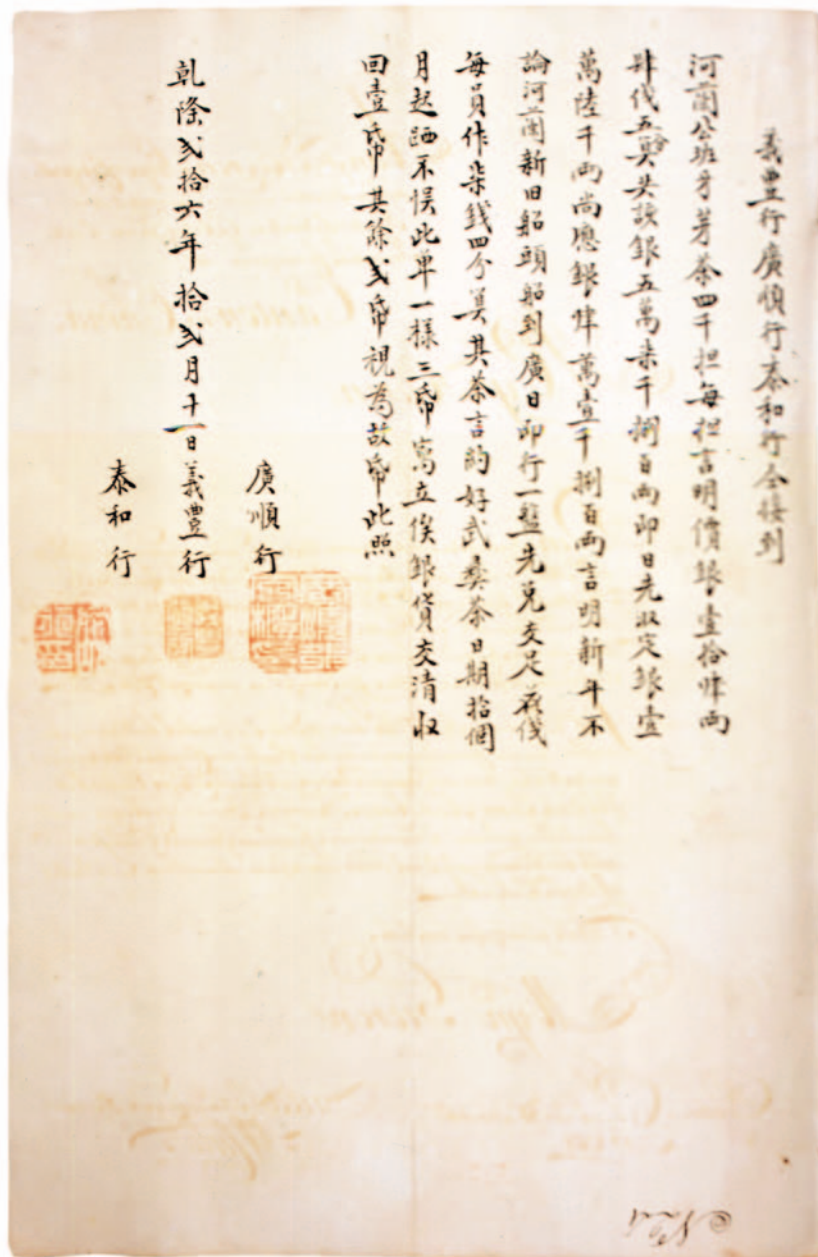 義豊行廣順行泰和行仝接到
河蘭公班牙芽茶四千担每担言明價銀壹拾肆両
肆代五分筭共該銀五萬柒千捌百両即日先收定銀壹
萬陸千両尚應銀肆萬壹千捌百両言明新年不
論河蘭新旧船頭船到廣日即行一盤先兑交足花伐
每員作柒錢四分筭其茶言約好武彝茶日期拾個
月起晒不悮此单一様三帋寫立俟銀貨交清收
回壹帋其餘弍帋視為故帋此照
廣順行
乹隆弍拾六年拾弍月十一日義豊行
泰和行